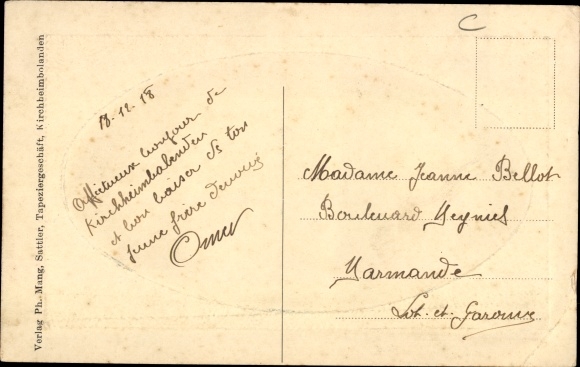 C
18-12-18
Affectueux bonjour de
Kirchheimbolanden
et bon baiser de ton
jeune frère dévoué
Omer
Madame Jeanne Bellot
Boulevard Meyniel
Marmande
Lot-et-Garonne
Verlag Ph. Mang, Sattler, Tapeziergeschäft, Kirchheimbolanden